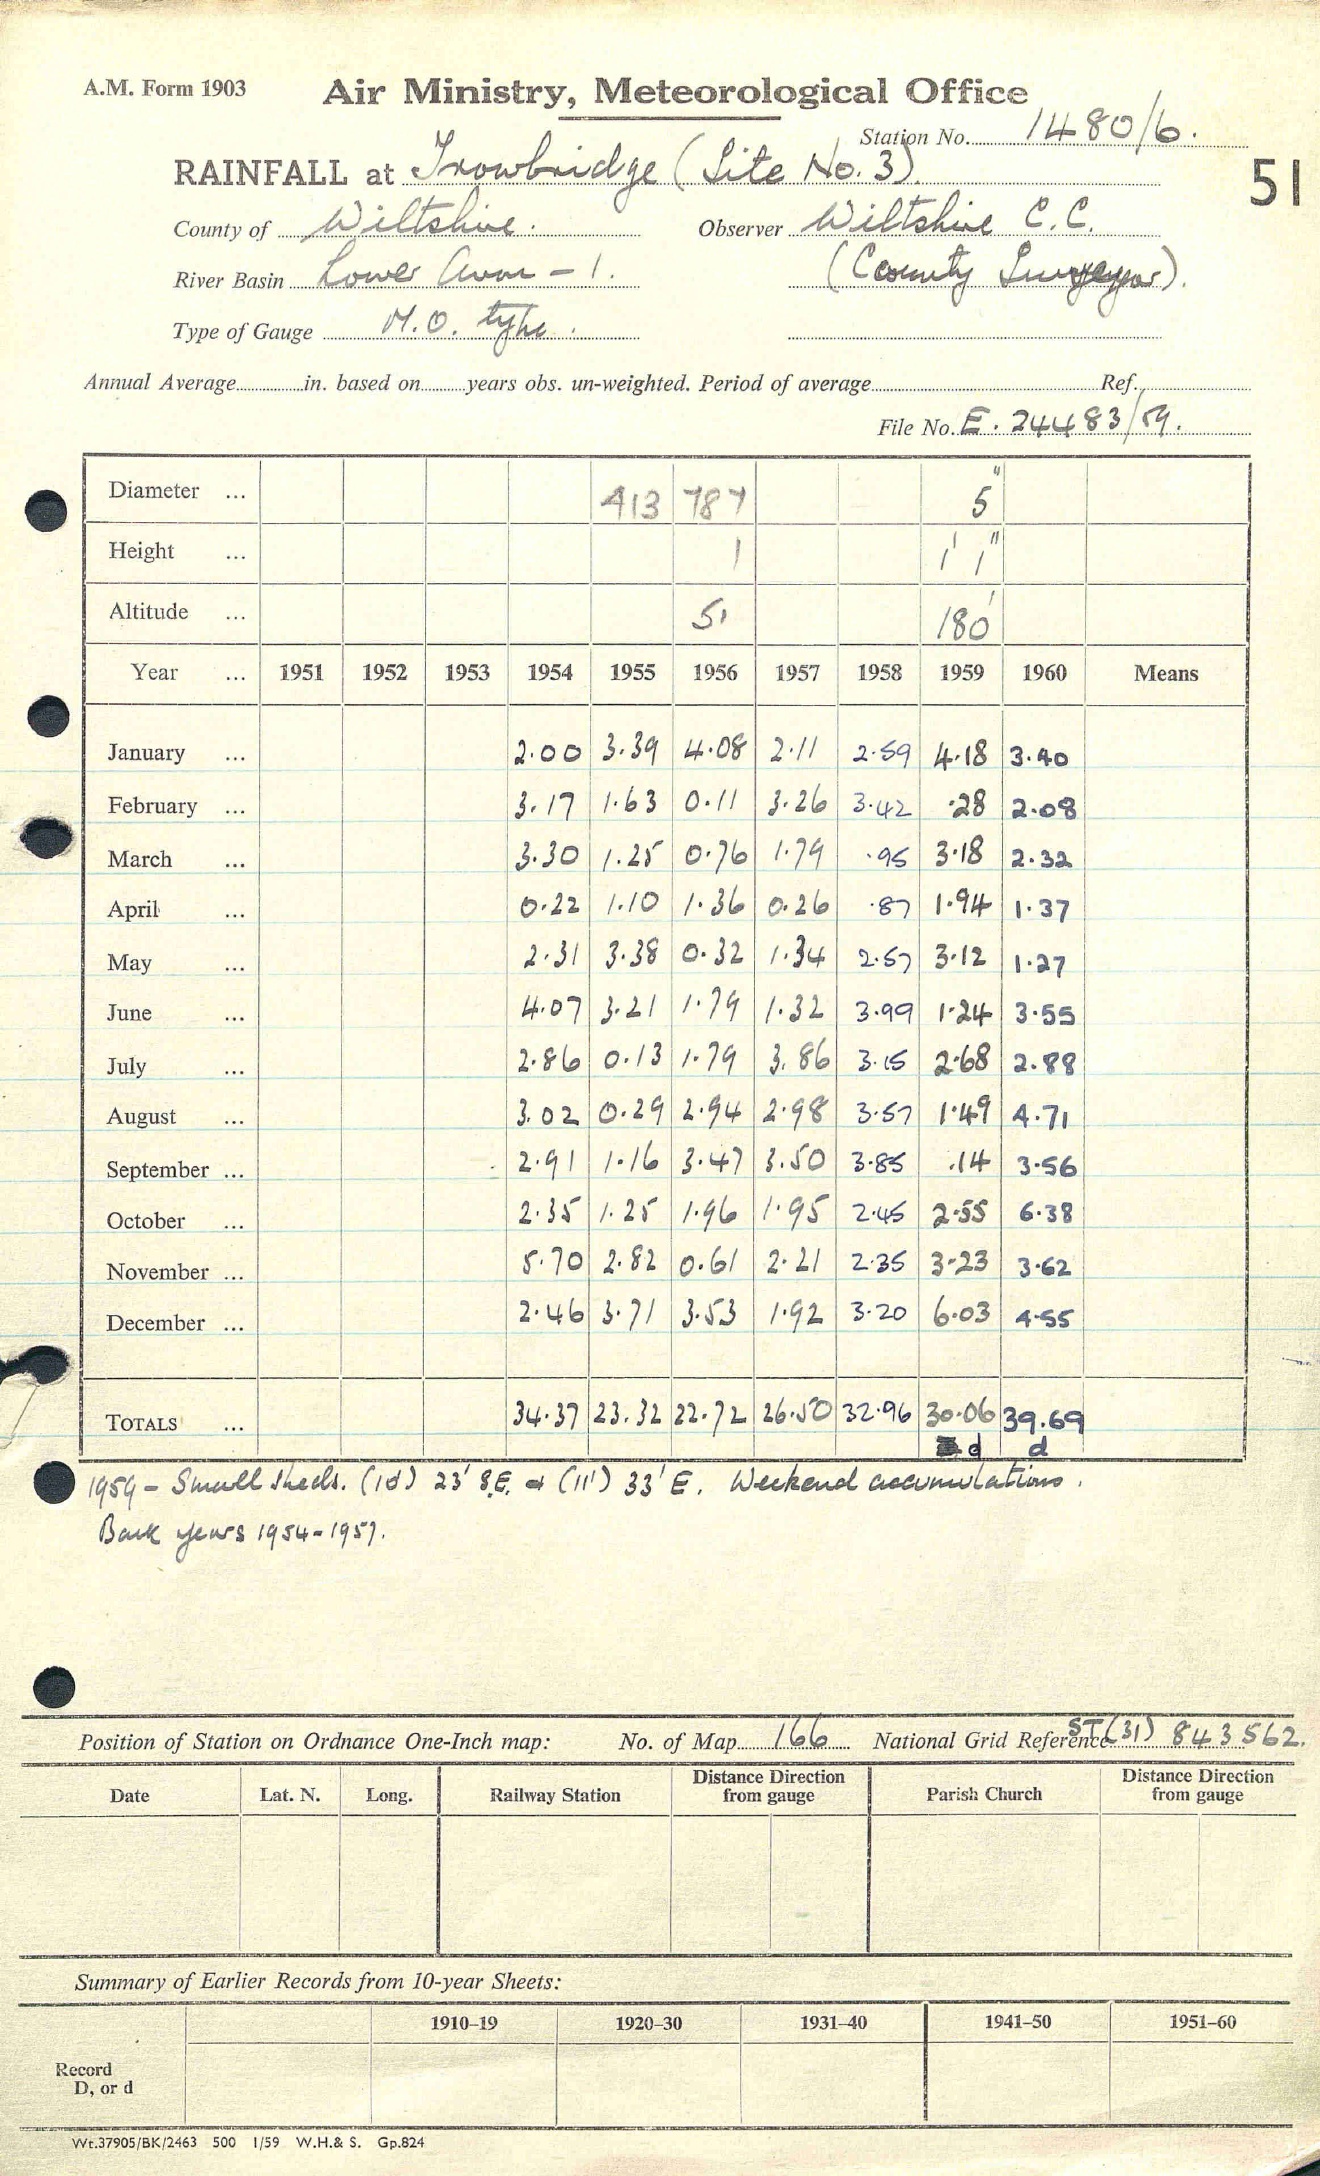 A.M. Form 1903 Air Ministry, Meteorological Office
Station No. 1480/6.
RAINFALL at Trowbridge (Site No. 3). 51
County of Wiltshire. Observer Wiltshire C.C.
River Basin Lower Avon – 1. (County Surveyor).
Type of Gauge M.O. type.
Annual Average in. based on years obs. un-weighted. Period of average Ref.
File No. E. 24483/59.
Diameter ... 413 787 5"
Height ... 1 1' 1"
Altitude ... 51 180'
Year ... 1951 1952 1953 1954 1955 1956 1957 1958 1959 1960 Means
January ... 2.00 3.39 4.08 2.11 2.59 4.18 3.40
February ... 3.17 1.63 0.11 3.26 3.42 .28 2.08
March ... 3.30 1.25 0.76 1.79 .95 3.18 2.32
April ... 0.22 1.10 1.36 0.26 .87 1.94 1.37
May ... 2.31 3.38 0.32 1.34 2.57 3.12 1.27
June ... 4.07 3.21 1.79 1.32 3.99 1.24 3.55
July ... 2.86 0.13 1.79 3.86 3.15 2.68 2.88
August ... 3.02 0.29 2.94 2.98 3.57 1.49 4.71
September ... 2.91 1.16 3.47 3.50 3.85 .14 3.56
October ... 2.35 1.25 1.96 1.95 2.45 2.55 6.38
November ... 5.70 2.82 0.61 2.21 2.35 3.23 3.62
December ... 2.46 3.71 3.53 1.92 3.20 6.03 4.55
TOTALS ... 34.37 23.32 22.72 26.50 32.96 30.06 39.69
d d
1959 – Small sheds. (10') 23' S.E. & (11') 33' E. Weekend accumulations.
Back years 1954-1957.
Position of Station on Ordnance One-Inch map: No. of Map 166 National Grid Reference ST(31) 843562.
Date Lat. N. Long. Railway Station Distance Direction from gauge Parish Church Distance Direction from gauge
Summary of Earlier Records from 10-year Sheets:
1910–19 1920–30 1931–40 1941–50 1951–60
Record
D, or d
Wt.37905/BK/2463 500 1/59 W.H.& S. Gp.824